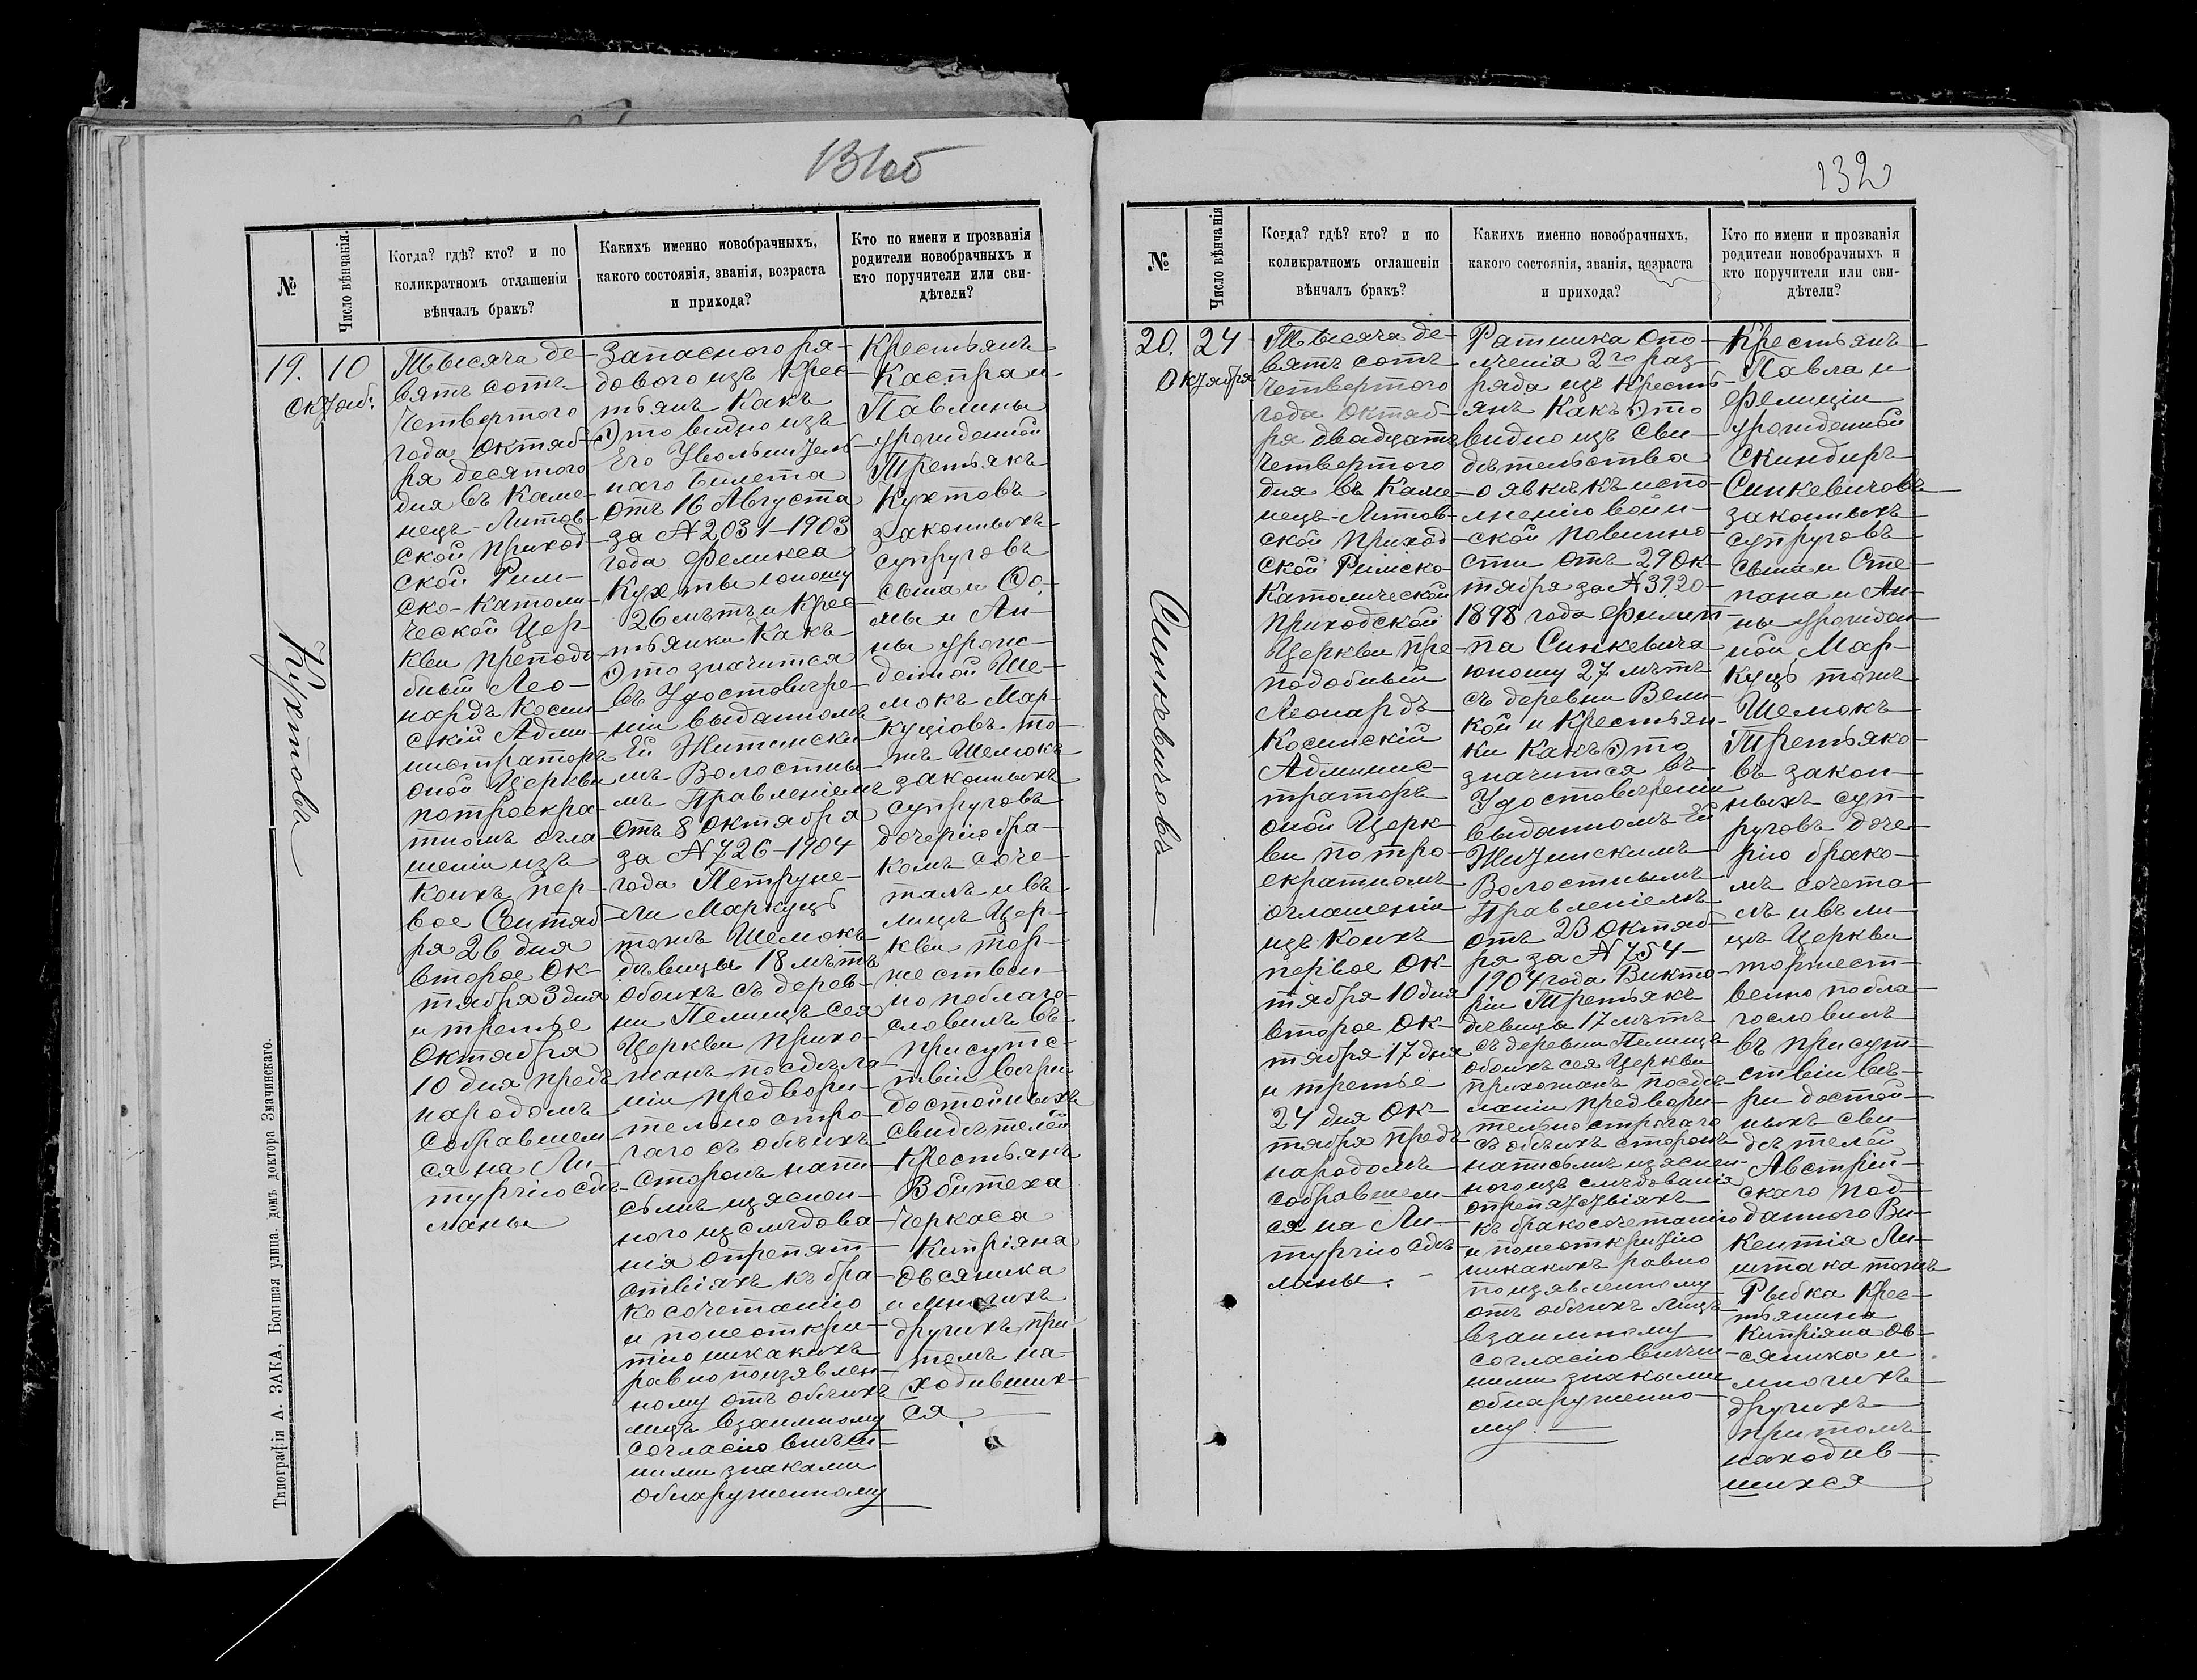 131об
№
Число вѣнчанія.
Когда? гдѣ? кто? и по
коликратномъ оглашеніи
вѣнчалъ бракъ?
Какихъ именно новобрачныхъ,
какого состоянія, званія, возраста
и прихода?
Кто по имени и прозванія
родители новобрачныхъ и
кто поручители или сви-
дѣтели?
19.
10
Октяб:
Кухтовъ
Тысяча де-
вять сотъ
Четвертого
года Октяб-
ря десятого
дня въ Каме-
нецъ-Литов-
ской приход-
ской Рим-
ско-Католи-
ческой Цер-
кви преподо-
бный Лео-
нардъ Косин-
скій Адми-
нистраторъ
оной Церкви
потроекра-
тномъ огла-
шеніи изъ
коихъ пер-
вое Сентяб-
ря 26 дня
второе Ок-
тября 3 дня
и третье
Октября
10 дня предъ
народомъ
собравшем-
ся на Ли-
тургію сдѣ-
ланы
Запасного ря-
дового изъ Крес-
тьянъ Какъ
Это видно изъ
Его Увольнитель-
наго билета
отъ 16 Августа
за № 2031-1903
года Феликса
Кухты юношу
26 лѣтъ и Крес-
тьянки Какъ
Это значится
въ Удостовѣре-
ніи выданномъ
Ей Житински-
мъ Волостны-
мъ Правленіемъ
отъ 8 Октября
за № 726-1904
года Петруне-
ли Маркуцъ
тожъ Шемокъ
дѣвицы 18 лѣтъ
обоихъ съ дерев-
ни Пелищъ сея
Церкви прихо-
жанъ посдѣла-
ніи предвори-
тельно стро-
гаго съ обѣихъ
сторонъ нати-
сьмѣ изяснен-
ного изслѣдова-
нія опрепят-
ствіяхъ къ бра-
косочетанію
и понеоткры-
тію никакихъ
равно поизявлен-
ному отъ обѣихъ
лицъ взаимному
согласію внѣш-
ними знаками
обнаруженному
Крестьянъ
Каспра и
Павлины
урожденной
Третьякъ
Кухтовъ
законныхъ
супруговъ
сына и Фо-
мы и Ан-
ны урож-
денной Ше-
мокъ Мар-
куцовъ то-
жъ Шемокъ
законныхъ
супруговъ
дочерію бра-
комъ соче-
талъ и въ
лицѣ Цер-
кви тор-
жествен-
но поблаго-
словилъ въ
присутс-
твіи вѣри-
достойныхъ
свидѣтелей
Крестьянъ
Войтеха
Черкаса
Кипріяна
Овсяника
и многихъ
другихъ при-
томъ на-
ходивших-
ся.
Типографія А. ЗАКА, Большая улица. домъ доктора Змачинскаго.
132
№
Число вѣнчанія
Когда? гдѣ? кто? и по
коликратномъ оглашеніи
вѣнчалъ бракъ?
Какихъ именно новобрачныхъ,
какого состоянія, званія, возраста
и прихода?
Кто по имени и прозванія
родители новобрачныхъ и
кто поручители или сви-
дѣтели?
20.
24
Октября
Синкевичовъ
Тысяча де-
вять сотъ
Четвертого
года Октяб-
ря двадцать
Четвертого
дня въ Каме-
нецъ-Литов-
ской приход-
ской Римско-
Католической
приходской
Церкви пре-
подобный
Леонардъ
Косинскій
Админис-
траторъ
оной Церк-
ви по тро-
екратномъ
оглашеніи
изъ коихъ
первое Ок-
тября 10 дня
второе Ок-
тября 17 дня
и третье
24 дня Ок-
тября предъ
народомъ
собравшем-
ся на Ли-
тургію сдѣ-
ланы.
Ратника Опо-
лченія 2го раз-
ряда изъ Кресть-
янъ Какъ Это
видно изъ Сви-
дѣтельства
о явкѣ къ испо-
лненію воин-
ской повинно-
сти отъ 29 Ок-
тября за № 3920-
1898 года Филип-
па Синкевича
юношу 27 лѣтъ
съ деревни Вели-
кой и Крестьян-
ки Какъ Это
значится въ
Удостовѣреніи
выданномъ Ей
Житинскимъ
Волостнымъ
Правленіемъ
отъ 23 Октяб-
ря за № 754-
1904 года Викто-
ріи Третьякъ
дѣвицы 17 лѣтъ
съ деревни Пелищъ
обоихъ сея Церкви
прихожанъ посдѣ-
ланіи предвори-
тельно строгаго
съ обѣихъ сторонъ
натисьмѣ изяснен-
ного изъ слѣдованія
опрепятствіяхъ
къ бракосочетанію
и понеоткрытію
никакихъ равно
поизявленному
отъ обѣихъ лицъ
взаимному
согласію внѣш-
ними знаками
обнаруженно-
му.
Крестьянъ
Павла и
Фелиціи
урожденной
Скиндиръ
Синкевичовъ
законныхъ
супруговъ
сына и Сте-
пана и Ан-
ны урожден-
ной Мар-
куцъ тожъ
Шемокъ
Третьяко-
въ закон-
ныхъ суп-
руговъ доче-
рію брако-
мъ сочета-
лъ и въ ли-
цѣ Церкви
торжест-
венно побла-
гословилъ
въ присут-
ствіи вѣ-
ри достой-
ныхъ сви-
дѣтелей
Австрій-
скаго под-
данного Ви-
кентія Ли-
штака тожъ
Рыбка Крес-
тьянина
Кипріяна Ов-
сяника и
многихъ
другихъ
притомъ
находив-
шихся